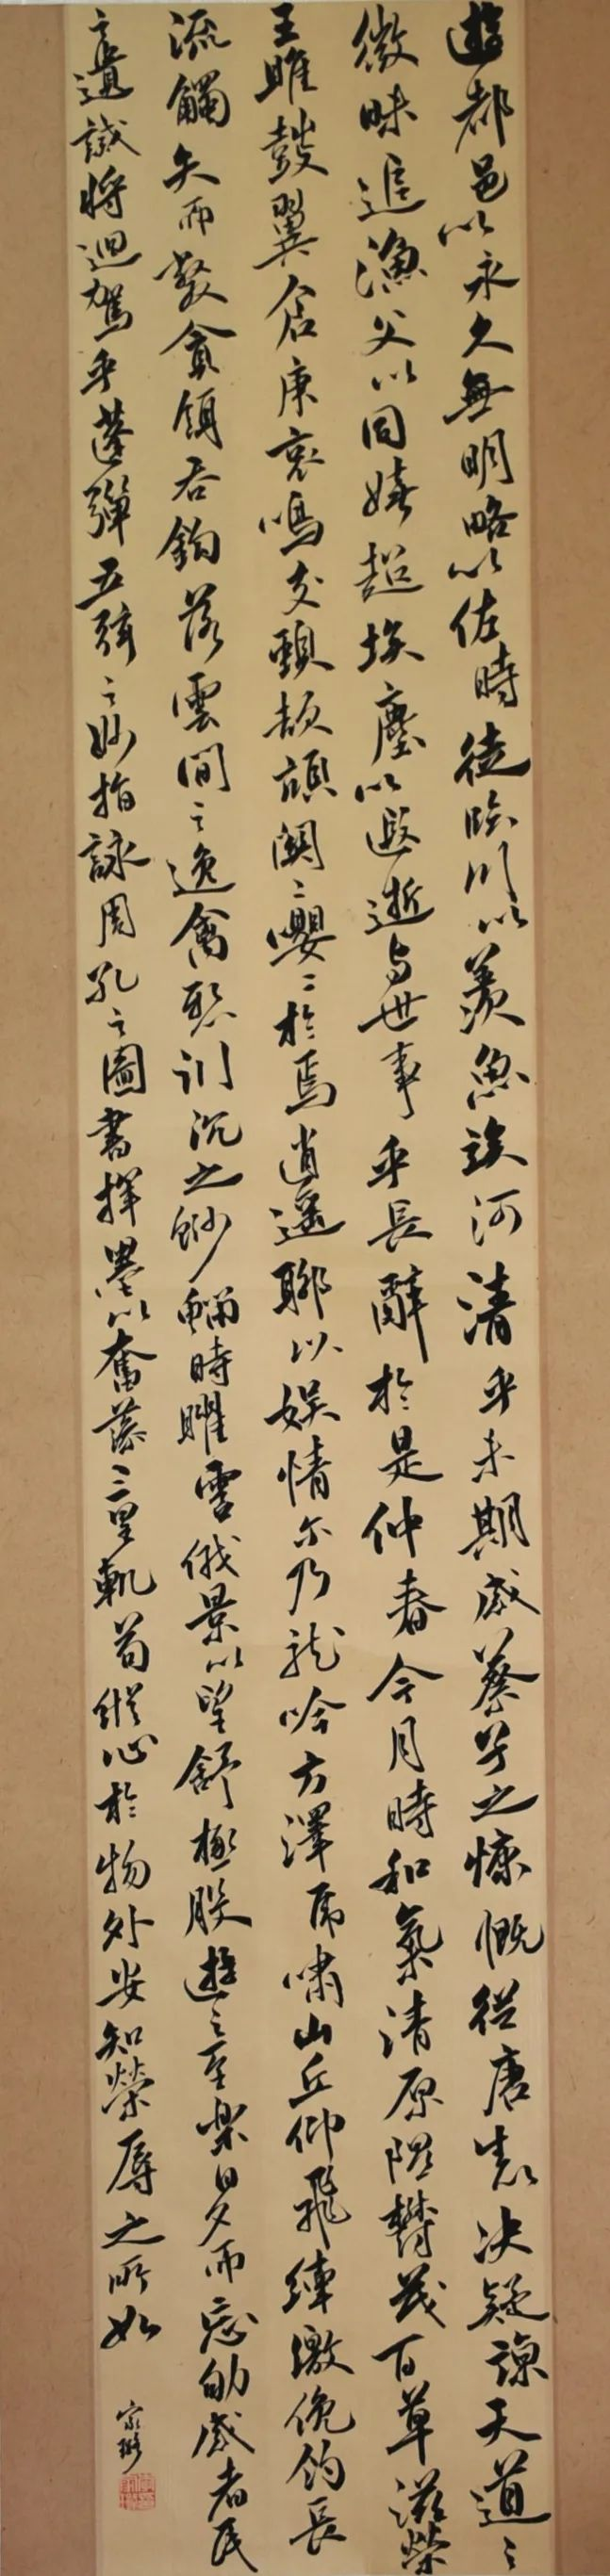 遊都邑以永久無明略以佐時徒臨川以羡魚俟河清乎未期感蔡子之慷慨從唐生以決疑諒天道之
微昧追漁父以同嬉超埃塵以遐逝與世事乎長辭於是仲春令月時和氣清原隰鬱茂百草滋榮
王雎鼓翼倉庚哀鳴交頸頡頏關〻嚶〻於焉逍遙聊以娛情尔乃龍吟方澤虎嘯山丘仰飛纖繳俛釣長
流觸矢而斃貪餌吞鉤落雲間之逸禽懸訓沉之魦鰡時曜靈俄景以望舒極般遊之至樂日夕而忘劬感老氏
之遺誡將迴駕乎蓬彈五弦之妙指詠周孔之圖書揮墨以奮藻三皇軌苟縱心於物外安知榮辱之所如